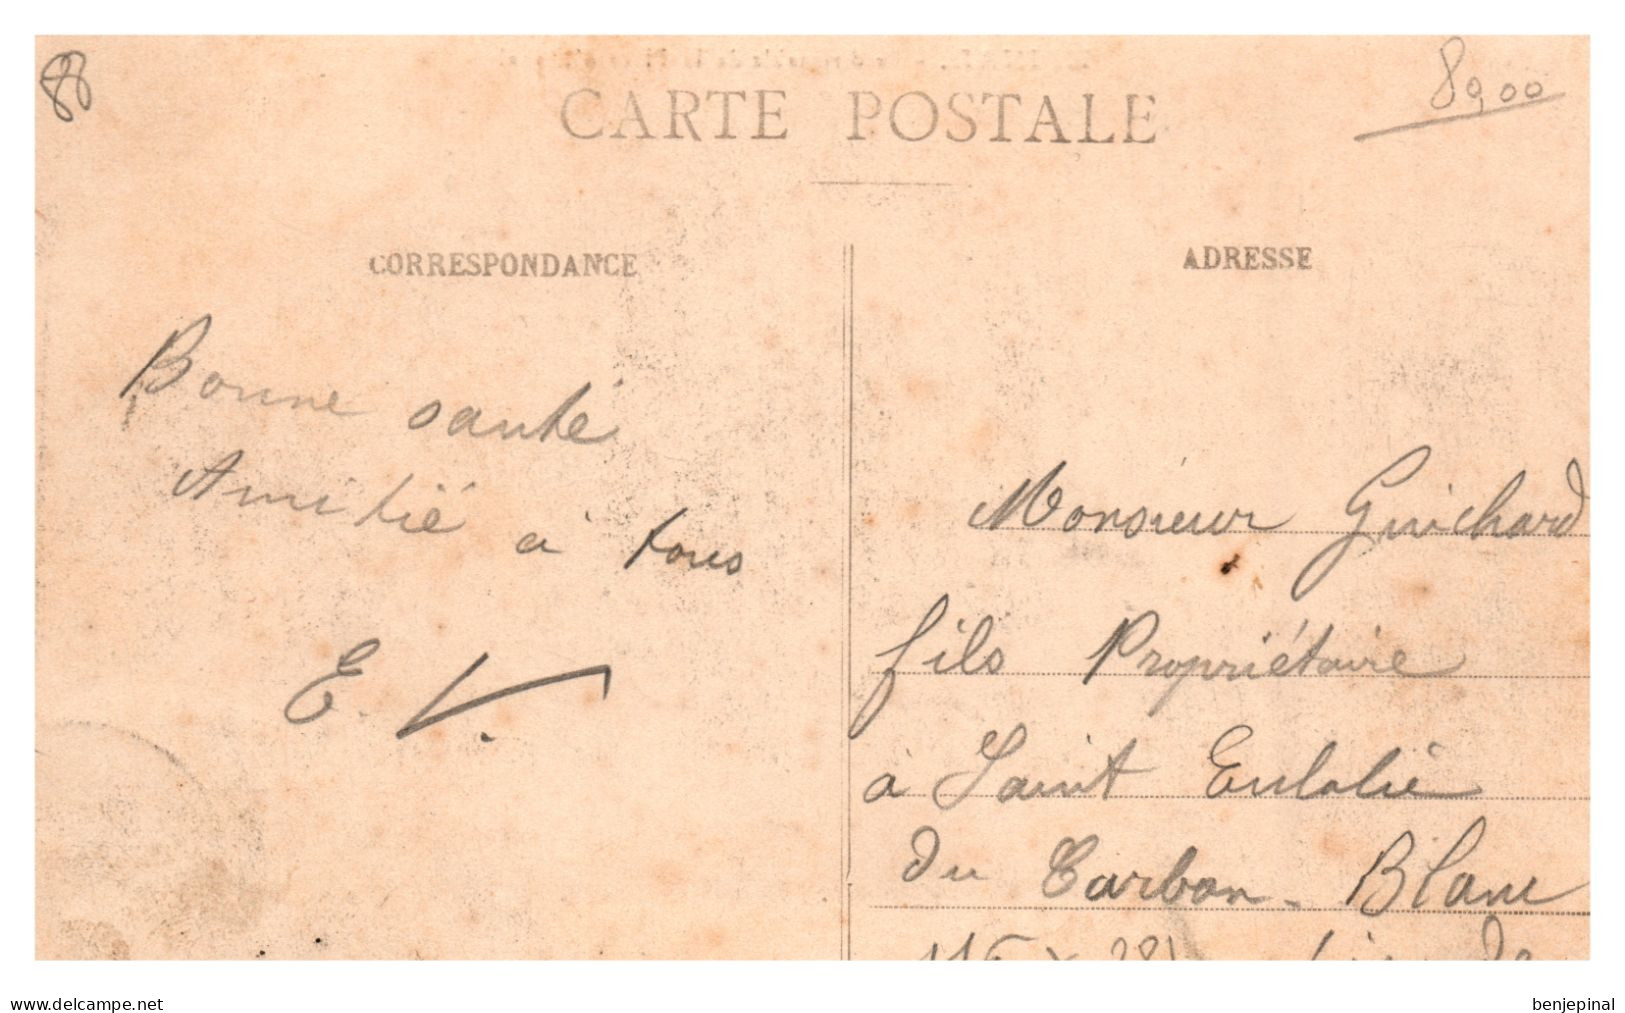 88
89,00
CARTE POSTALE
CORRESPONDANCE
Bonne santé
Amitié à tous
E. V.
ADRESSE
Monsieur Guichard
fils Propriétaire
à Saint Eulalie
du Carbon-Blanc
www.delcampe.net
benjepinal